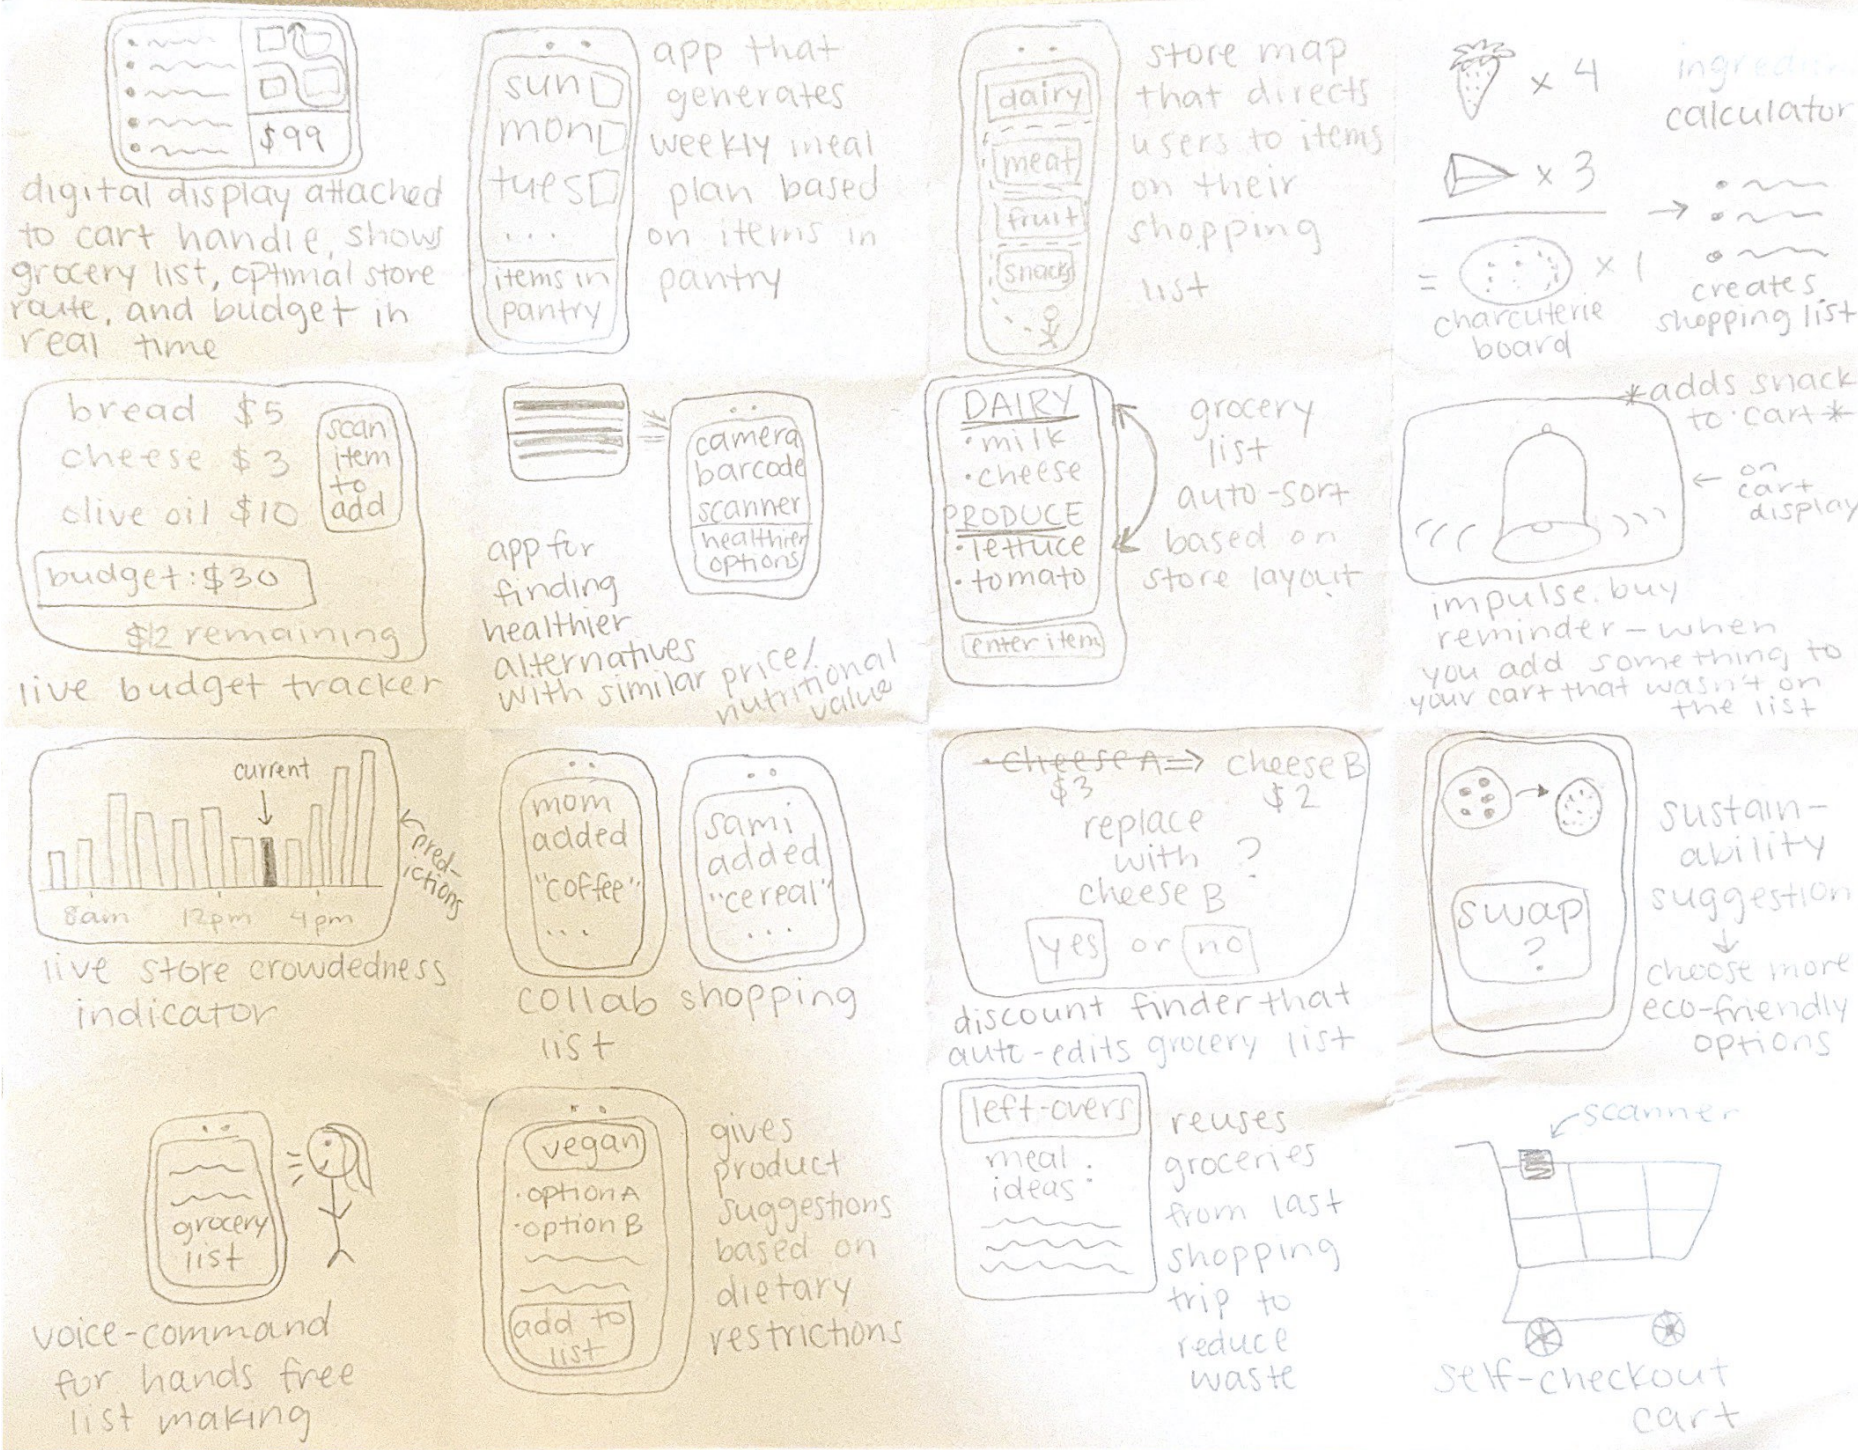 $99
digital display attached
to cart handle, shows
grocery list, optimal store
route, and budget in
real time
sun
mon
tues
...
items in
pantry
app that
generates
weekly meal
plan based
on items in
pantry
dairy
meat
fruit
snacks
store map
that directs
users to items
on their
shopping
list
x 4
x 3
= x 1
charcuterie
board
ingredient
calculator
→
creates
shopping list
bread $5
cheese $3
olive oil $10
scan
item
to
add
budget: $30
$12 remaining
live budget tracker
camera
barcode
scanner
healthier
options
app for
finding
healthier
alternatives
with similar price/
nutritional
value
DAIRY
• milk
• cheese
PRODUCE
• lettuce
• tomato
enter item
grocery
list
auto-sort
based on
store layout
*adds snack
to cart*
← on
cart
display
impulse buy
reminder – when
you add something to
your cart that wasn't on
the list
current
8am 12pm 4pm
pred-
ictions
live store crowdedness
indicator
mom
added
"coffee"
...
sami
added
"cereal"
...
collab shopping
list
• cheese A ⇒ cheese B
$3 $2
replace
with
cheese B
?
yes or no
discount finder that
auto-edits grocery list
swap
?
sustain-
ability
suggestion
↓
choose more
eco-friendly
options
grocery
list
voice-command
for hands free
list making
vegan
• option A
• option B
add to
list
gives
product
suggestions
based on
dietary
restrictions
left-overs
meal
ideas:
reuses
groceries
from last
shopping
trip to
reduce
waste
scanner
self-checkout
cart